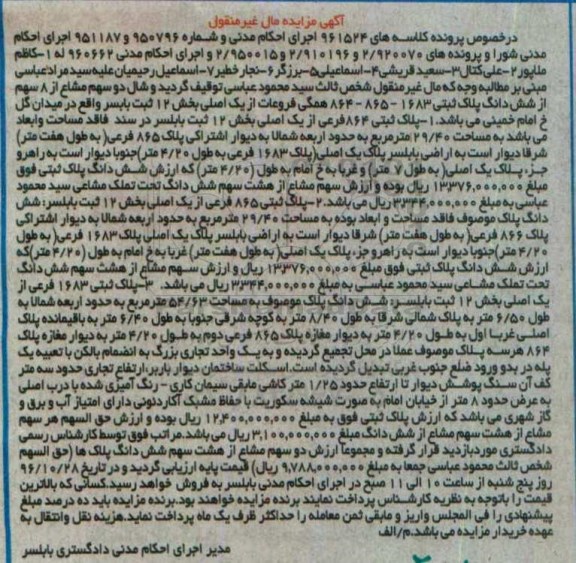 آگهی مزایده مال غیرمنقول
درخصوص پرونده کلاسه های ۹۶۱۵۲۴ اجرای احکام مدنی و شماره ۹۵۰۷۹۶ و ۹۵۱۱۸۷ اجرای احکام
مدنی شورا و پرونده های ۲/۹۲۰۰۷۰ و ۲/۹۱۰۱۹۶ و ۲/۹۵۰۰۱۵ و اجرای احکام مدنی ۹۶۰۶۶۲ له ۱-کاظم
ملاپور ۲-علی کتال ۳-سعید قریشی ۴-اسماعیلی ۵-برزگر ۶-نجار خطیر ۷-اسماعیل رحیمیان علیه سید مراد عباسی
مبنی بر مطالبه وجه که مال غیر منقول شخص ثالث سید محمود عباسی توقیف گردید و شال دو سهم مشاع از ۸ سهم
از شش دانگ پلاک ثبتی ۱۶۸۳ - ۸۶۵ - ۸۶۴ همگی فروعات از یک اصلی بخش ۱۲ ثبت بابسر واقع در میدان گل
خ امام خمینی می باشد. ۱-پلاک ثبتی ۸۶۴ فرعی از یک اصلی بخش ۱۲ ثبت بابلسر در سند فاقد مساحت وابعاد
می باشد به مساحت ۲۹/۴۰ مترمربع به حدود اربعه شمالا به دیوار اشتراکی پلاک ۸۶۵ فرعی( به طول هفت متر)
شرقا دیوار است به اراضی بابلسر پلاک یک اصلی(پلاک ۱۶۸۳ فرعی به طول ۴/۲۰ متر)جنوبا دیوار است به راهرو
جزء پلاک یک اصلی( به طول ۷ متر) و غربا به خ امام به طول (۴/۲۰ متر) که ارزش شش دانگ پلاک ثبتی فوق
مبلغ ۱۳۳۷۶,۰۰۰,۰۰۰ ریال بوده و ارزش سهم مشاع از هشت سهم شش دانگ تحت تملک مشاعی سید محمود
عباسی به مبلغ ۳۳۴۴,۰۰۰,۰۰۰ ریال می باشد. ۲-پلاک ثبتی ۸۶۵ فرعی از یک اصلی بخش ۱۲ ثبت بابلسر: شش
دانگ پلاک موصوف فاقد مساحت و ابعاد بوده به مساحت ۲۹/۴۰ مترمربع به حدود اربعه شمالا به دیوار اشتراکی
پلاک ۸۶۶ فرعی( به طول هفت متر) شرقا دیوار است به اراضی بابلسر پلاک یک اصلی پلاک ۱۶۸۳ فرعی( به طول
۴/۲۰ متر)جنوبا دیوار است به راهرو جزء پلاک یک اصلی( به طول هفت متر) غربا به خ امام به طول (۴/۲۰ متر)که
ارزش شش دانگ پلاک ثبتی فوق مبلغ ۱۳۳۷۶,۰۰۰,۰۰۰ ریال و ارزش سهم مشاع از هشت سهم شش دانگ
تحت تملک مشاعی سید محمود عباسی به مبلغ ۳۳۴۴,۰۰۰,۰۰۰ ریال می باشد. ۳-پلاک ثبتی ۱۶۸۳ فرعی از
یک اصلی بخش ۱۲ ثبت بابلسر: شش دانگ پلاک موصوف به مساحت ۵۴/۶۳ مترمربع به حدود اربعه شمالا به
طول ۶/۵۰ متر به پلاک شمالی شرقا به طول ۸/۴۰ متر به کوچه شرقی جنوبا به طول ۶/۴۰ متر به باقیمانده پلاک
اصلی غربا اول به طول ۴/۲۰ متر به دیوار مغازه پلاک ۸۶۵ فرعی دوم به طول ۴/۲۰ متر به دیوار مغازه پلاک
۸۶۴ هرسه پلاک موصوف عملا در محل تجمیع گردیده و به یک واحد تجاری بزرگ به انضمام بالکن با تعبیه یک
پله در بدو ورود ضلع جنوب غربی تبدیل گردیده است.اسکلت ساختمان دیوار باربر،ارتفاع تجاری حدود سه متر
کف آن سنگ پوشش دیوار تا ارتفاع حدود ۱/۲۵ متر کاشی مابقی سیمان کاری - رنگ آمیزی شده با درب اصلی
به عرض حدود ۸ متر از خیابان امام به صورت شیشه سکوریت با حفاظ مشبک آکاردئونی دارای امتیاز آب و برق و
گاز شهری می باشد که ارزش پلاک ثبتی فوق به مبلغ ۱۲,۴۰۰,۰۰۰,۰۰۰ ریال بوده و ارزش حق السهم هر سهم
مشاع از هشت سهم مشاع از شش دانگ مبلغ ۳,۱۰۰,۰۰۰,۰۰۰ ریال می باشد.مراتب فوق توسط کارشناس رسمی
دادگستری موردبازدید قرار گرفته و مجموعا ارزش دو سهم مشاع از هشت سهم شش دانگ پلاک ها (حق السهم
شخص ثالث محمود عباسی جمعا به مبلغ ۹,۷۸۸,۰۰۰,۰۰۰ ریال) قیمت پایه ارزیابی گردید و در تاریخ ۹۶/۱۰/۲۸
روز پنج شنبه از ساعت ۱۰ الی ۱۱ صبح در اجرای احکام مدنی بابلسر به فروش خواهد رسید.کسانی که بالاترین
قیمت را باتوجه به نظریه کارشناس پرداخت نمایند برنده مزایده خواهند بود.برنده مزایده باید ده درصد مبلغ
پیشنهادی را فی المجلس واریز و مابقی ثمن معامله را حداکثر ظرف یک ماه پرداخت نماید.هزینه نقل وانتقال به
عهده خریدار مزایده می باشد.م/الف
مدیر اجرای احکام مدنی دادگستری بابلسر